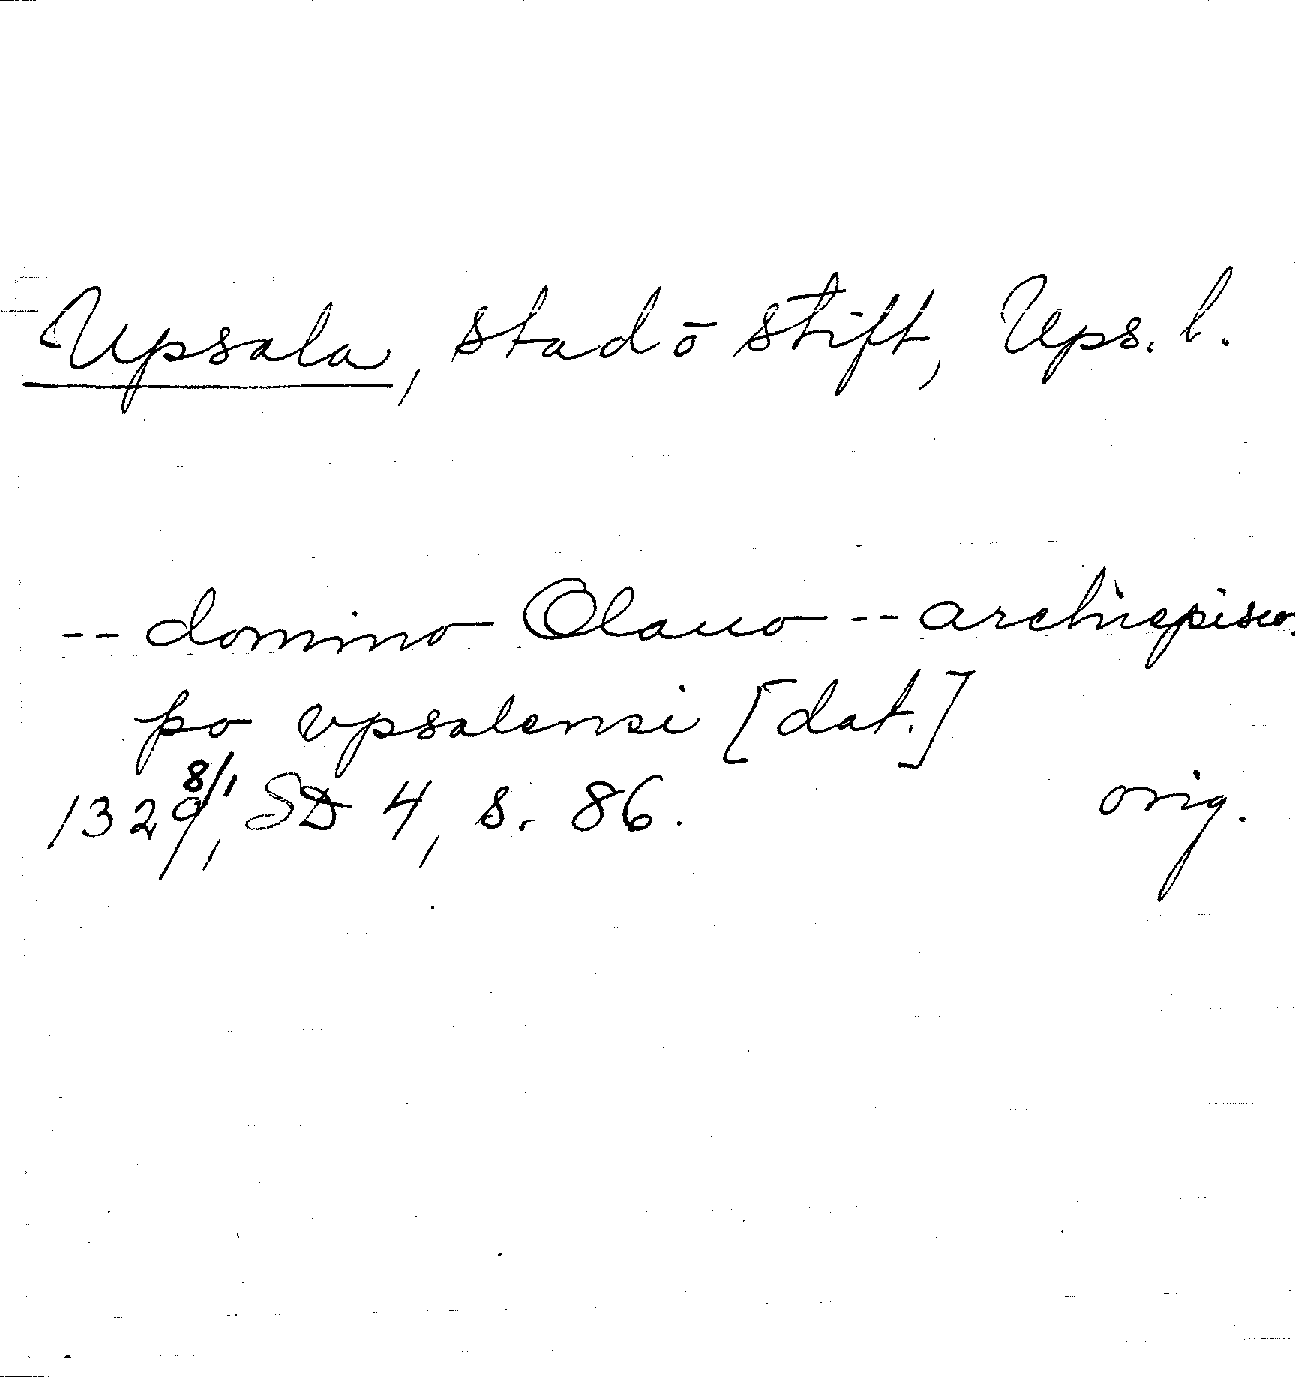 Upsala, stad ō stift, Ups. l.
-- domino Olauo -- archiepisco-
po vpsalensi [dat.]
1329 8/1, SD 4, s. 86. orig.